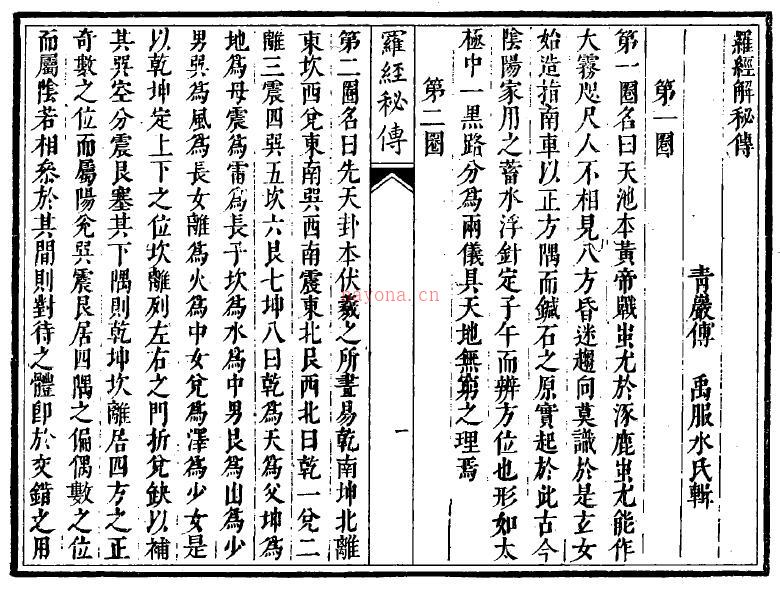 羅經解秘傳
青嚴傳　禹服水氏輯
第一圈
第一圈名曰天池本黃帝戰蚩尤於涿鹿蚩尤能作
大霧咫尺人不相見八方昏迷趨向莫識於是玄女
始造指南車以正方隅而鍼石之原實起於此古今
陰陽家用之蓄水浮針定子午而辨方位也形如太
極中一黑路分爲兩儀具天地無窮之理焉
第二圈
羅經秘傳
一
第二圈名曰先天卦本伏羲之所畫易乾南坤北離
東坎西兌東南巽西南震東北艮西北曰乾一兌二
離三震四巽五坎六艮七坤八曰乾爲天爲父坤爲
地爲母震爲雷爲長子坎爲水爲中男艮爲山爲少
男巽爲風爲長女離爲火爲中女兌爲澤爲少女是
以乾坤定上下之位坎離列左右之門折兌缺以補
其巽空分震艮塞其下隅則乾坤坎離居四方之正
奇數之位而屬陽兌巽震艮居四隅之偏偶數之位
而屬陰若相參於其間則對待之體卽於交錯之用
nayona.cn